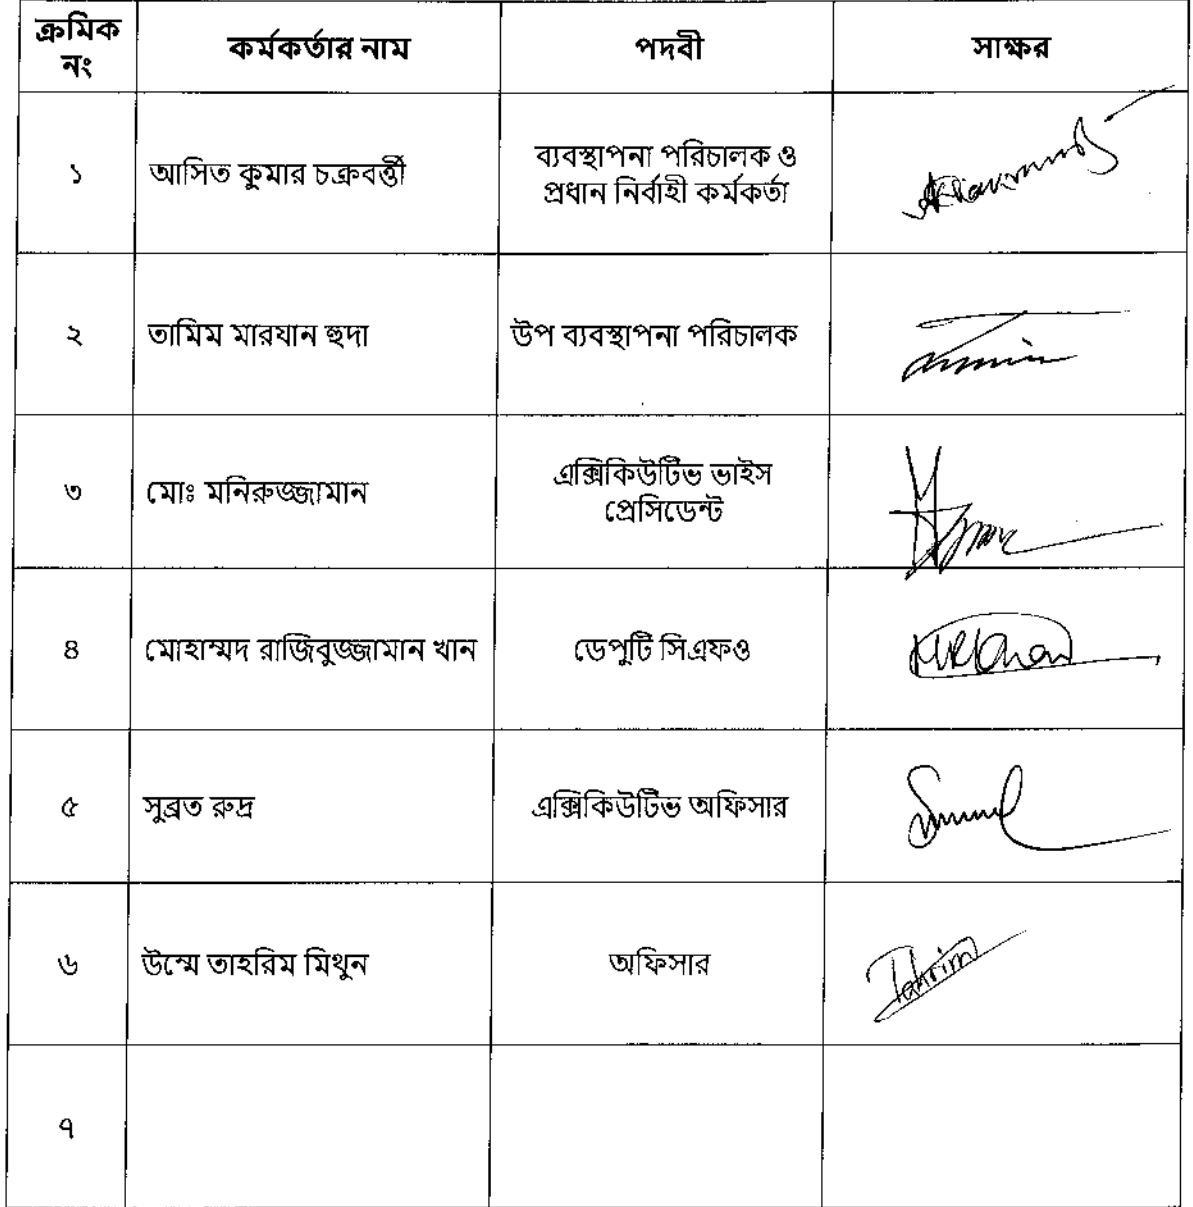 ক্রমিক নং কর্মকর্তার নাম পদবী সাক্ষর
১ আসিত কুমার চক্রবর্ত্তী ব্যবস্থাপনা পরিচালক ও
প্রধান নির্বাহী কর্মকর্তা
২ তামিম মারযান হুদা উপ ব্যবস্থাপনা পরিচালক
৩ মোঃ মনিরুজ্জামান এক্সিকিউটিভ ভাইস
প্রেসিডেন্ট
৪ মোহাম্মদ রাজিবুজ্জামান খান ডেপুটি সিএফও
৫ সুব্রত রুদ্র এক্সিকিউটিভ অফিসার
৬ উম্মে তাহরিম মিথুন অফিসার Tahrim
৭